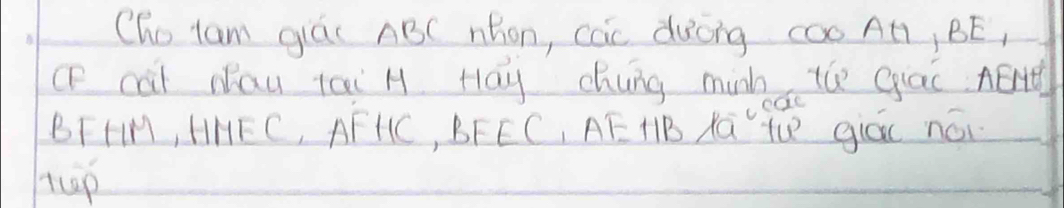 Cho tam giác ABC nhọn, các đường cao AM, BE,
CF cắt nhau tại H Hãy chứng minh tứ giác AEHF
BFHM, HMEC, AFHC, BFEC, AEHB là các tứ giác nội
tiếp